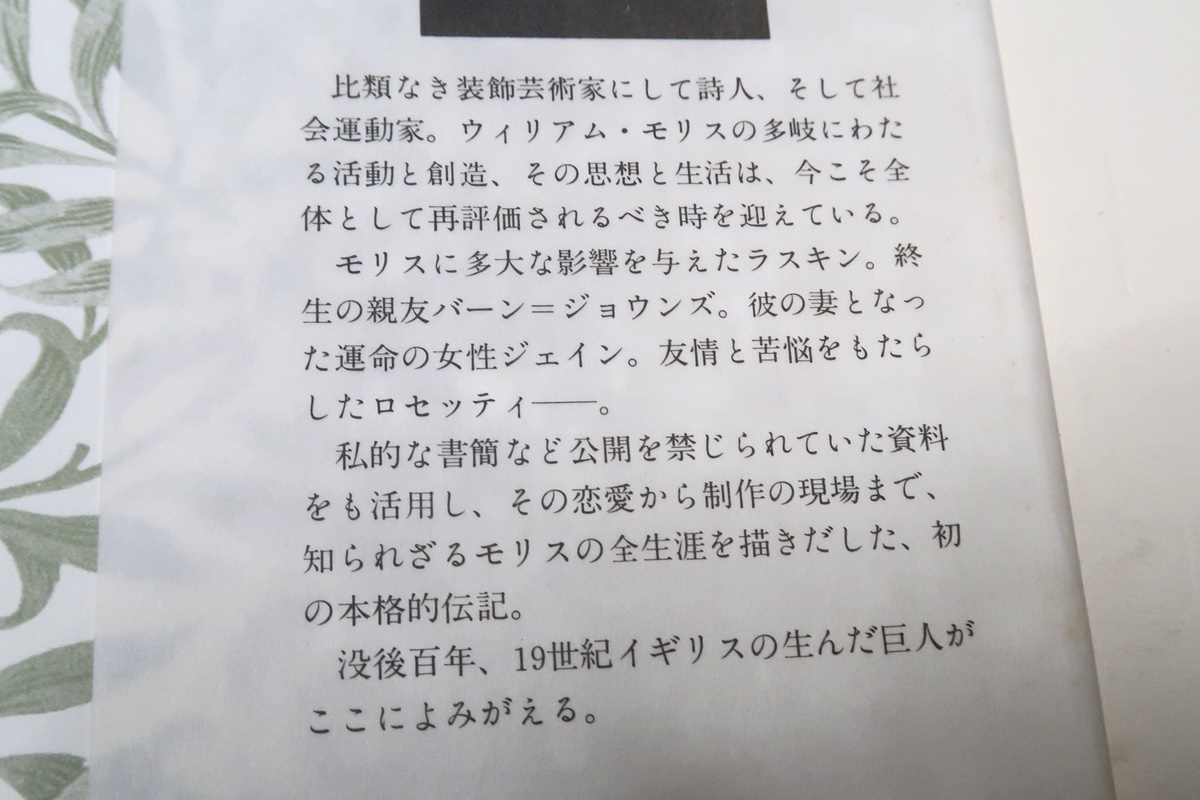 比類なき装飾芸術家にして詩人、そして社
会運動家。ウィリアム・モリスの多岐にわた
る活動と創造、その思想と生活は、今こそ全
体として再評価されるべき時を迎えている。
モリスに多大な影響を与えたラスキン。終
生の親友バーン＝ジョウンズ。彼の妻となっ
た運命の女性ジェイン。友情と苦悩をもたら
したロセッティ――。
私的な書簡など公開を禁じられていた資料
をも活用し、その恋愛から制作の現場まで、
知られざるモリスの全生涯を描きだした、初
の本格的伝記。
没後百年、19世紀イギリスの生んだ巨人が
ここによみがえる。